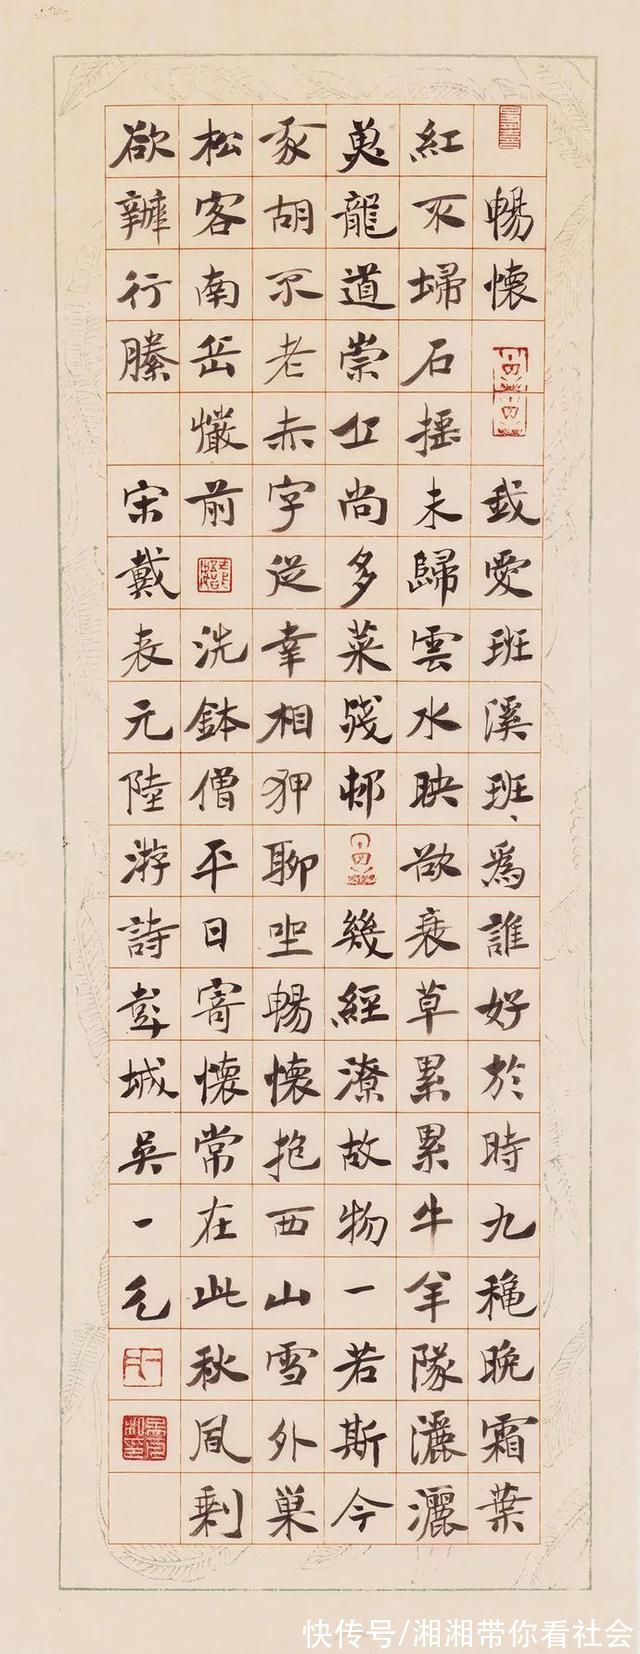 暢懷 我愛班溪班、爲誰好於時九穐晚霜葉
紅不埽石搖未歸雲水映欲衰草累累牛羊隊灑灑
龍道崇丘尚多菜殘邨幾經潦故物一若斯今
胡不老赤字從幸相狎聊坐暢懷抱西山雪外巢
松客南岳巖前洗鉢僧平日寄懷常在此秋風剩
欲辦行縢 宋戴表元陸游詩彭城吳一乞
快传号/湘湘带你看社会